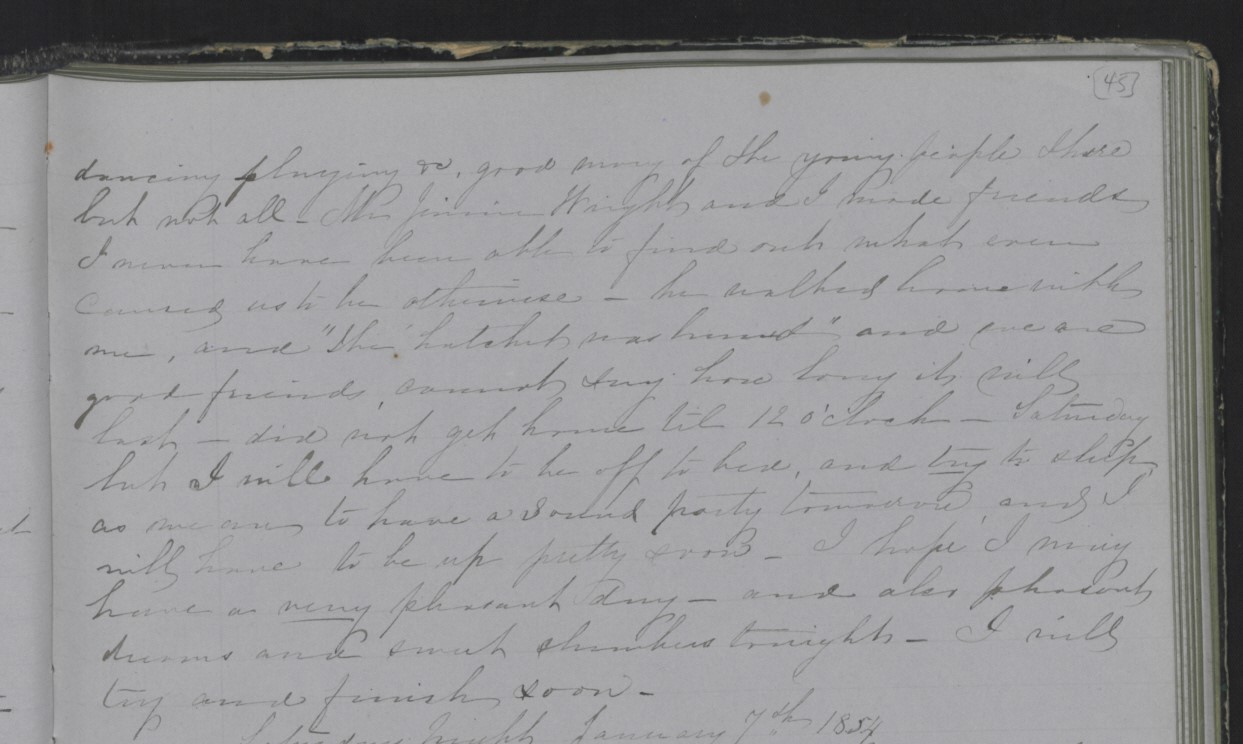 [45]
dancing playing &c, good many of the young people there
but not all - Mr Jimmie Wright and I made friends
I never have been able to find out what ever
caused us to be otherwise - he walked home with
me, and "the hatchet was buried" and we are
good friends, cannot say how long it will
last - did not get home til 12 o'clock - Saturday
but I will have to be off to bed, and try to sleep,
as we are to have a Sound party tomorrow, and I
will have to be up pretty soon - I hope I may
have a very pleasant day - and also pleasant
dreams and sweet slumbers tonight - I will
try and finish soon -
Saturday Night January 7th 1854